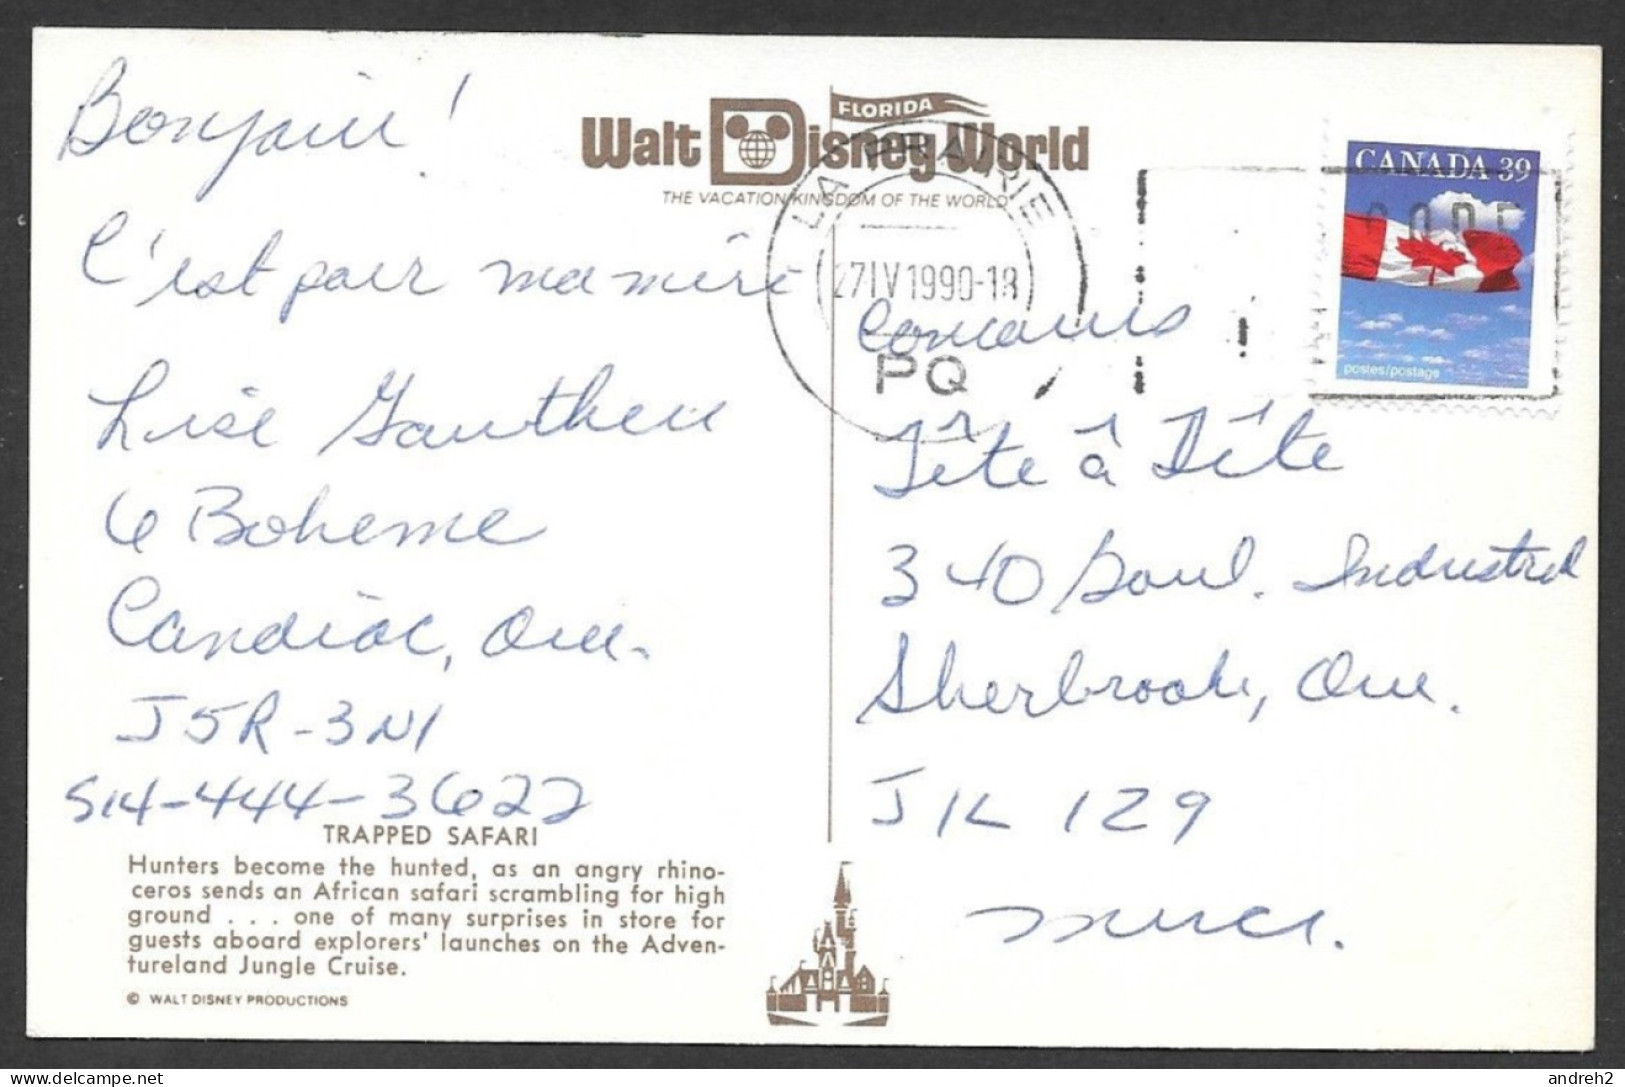 Bonjour!
C'est pour ma mère
Lise Gauthier
6 Boheme
Candiac, Que.
J5R-3N1
514-444-3622
TRAPPED SAFARI
Hunters become the hunted, as an angry rhino-
ceros sends an African safari scrambling for high
ground . . . one of many surprises in store for
guests aboard explorers' launches on the Adven-
tureland Jungle Cruise.
© WALT DISNEY PRODUCTIONS
FLORIDA
Walt Disney World
THE VACATION KINGDOM OF THE WORLD
LA PRAIRIE
27 IV 1990-18
PQ
CANADA 39
CODE
postes/postage
Concours
Tête à Tête
340 Boul. Industriel
Sherbrooke, Que.
J1L 1Z9
merci.
delcampe.net
andreh2